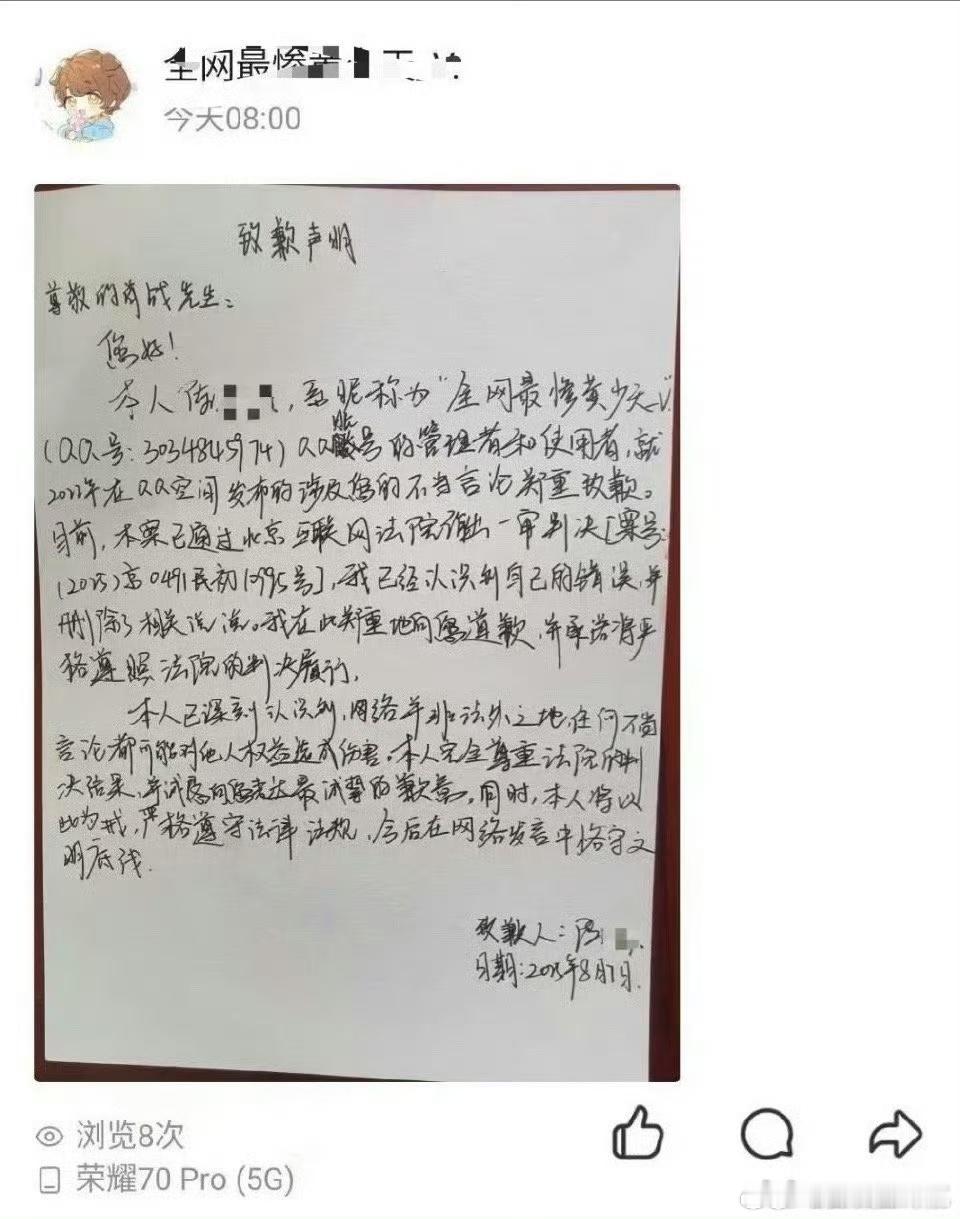 全网最惨
今天08:00
致歉声明
尊敬的肖战先生:
您好!
本人陈, 系昵称为"全网最惨黄少天√"
(QQ号:3034845974) QQ账号的管理者和使用者,就
2022年在QQ空间发布的涉及您的不当言论郑重致歉。
目前,本案已通过北京互联网法院作出一审判决[案号:
(2025)京0491民初1995号],我已经认识到自己的错误,并
删除了相关说说。我在此郑重地向您道歉,并承诺将严
格遵照法院的判决履行。
本人已深刻认识到,网络并非法外之地,任何不当
言论都可能对他人权益造成伤害。本人完全尊重法院的判
决结果,并诚恳向您表达最诚挚的歉意。同时,本人将以
此为戒,严格遵守法律法规,今后在网络发言中恪守文
明底线.
致歉人:陈
日期:2025年8月7日.
浏览8次
荣耀70 Pro (5G)